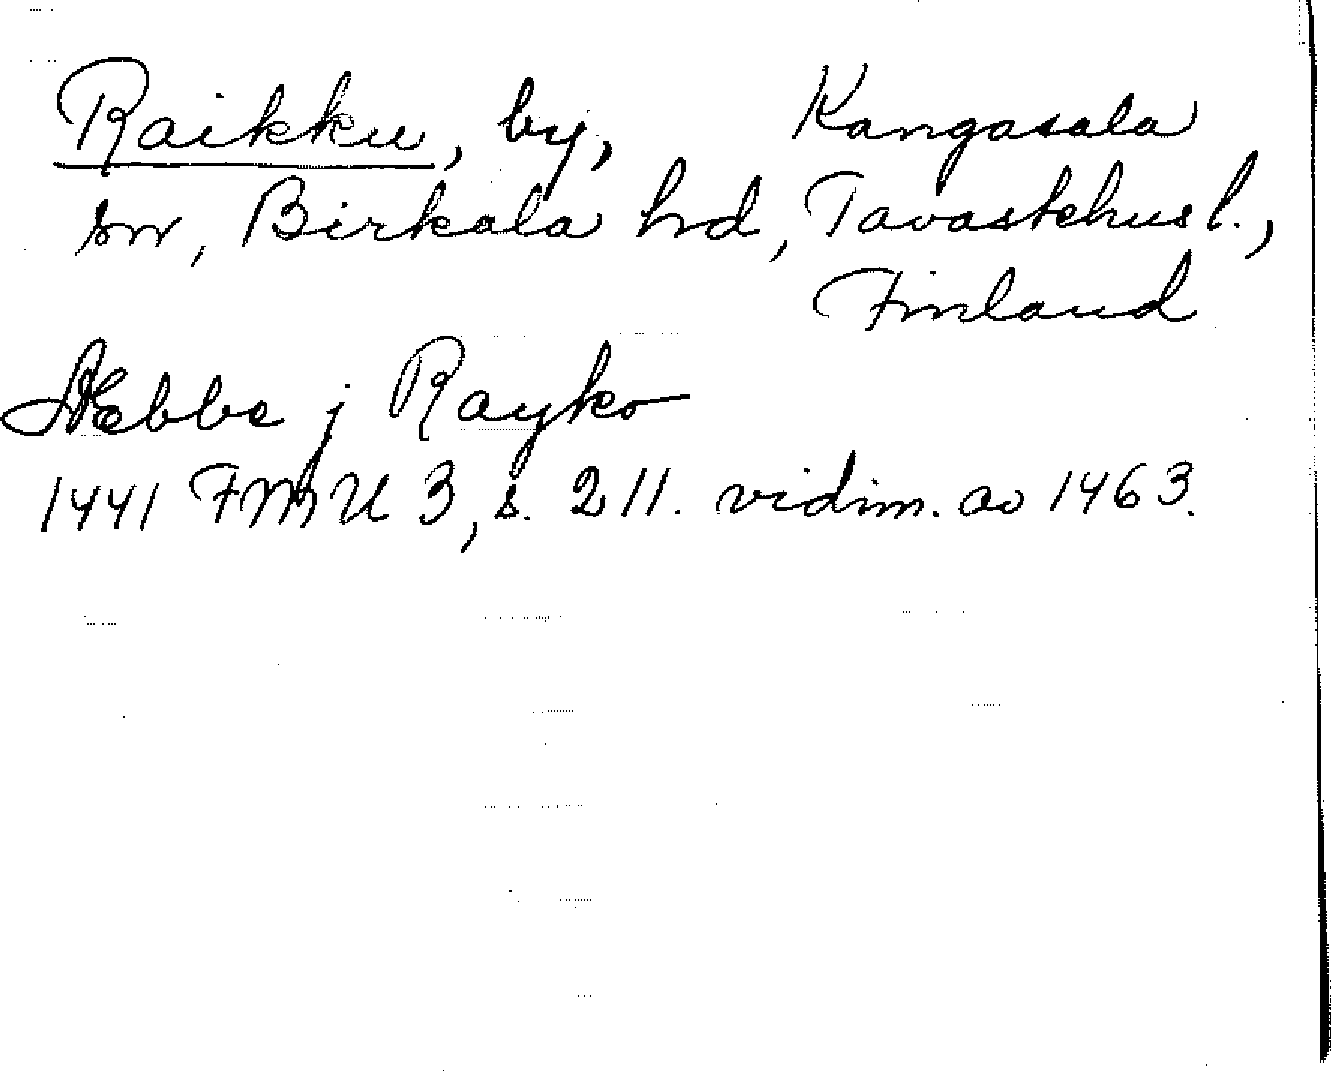 Raikku, by, Kangasala
sn, Birkala hd, Tavastehus l.,
Finland
Æbbe j Rayko
1441 FMU 3, s. 211. vidim. av 1463.